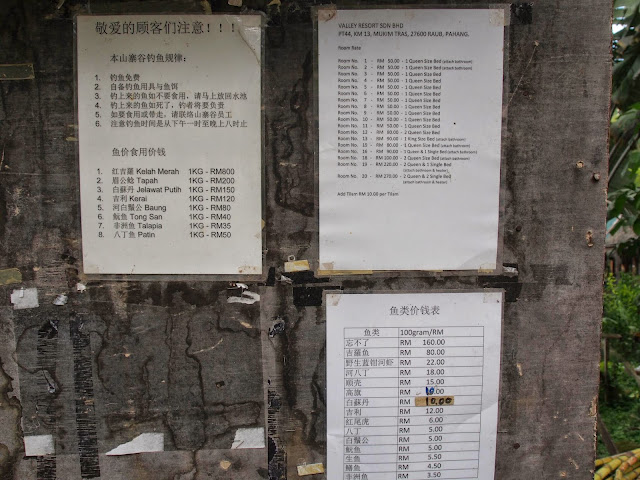 敬爱的顾客们注意！！！
本山寨谷钓鱼规律：
1. 钓鱼免费
2. 自备钓鱼用具与鱼饵
3. 钓上来的鱼如不要食用，请马上放回水池
4. 钓上来的鱼如死了，钓者将要负责
5. 如要食用或带走，请联络山寨谷员工
6. 注意钓鱼时间是从下午一时至晚上八时止
鱼价食用价钱
1. 红吉羅 Kelah Merah 1KG - RM800
2. 眉公鲶 Tapah 1KG - RM200
3. 白蘇丹 Jelawat Putih 1KG - RM150
4. 吉利 Kerai 1KG - RM120
5. 河白鬚公 Baung 1KG - RM80
6. 鯇鱼 Tong San 1KG - RM40
7. 非洲鱼 Talapia 1KG - RM35
8. 八丁鱼 Patin 1KG - RM50
VALLEY RESORT SDN BHD
PT44, KM 13, MUKIM TRAS, 27600 RAUB, PAHANG.
Room Rate
Room No. 1 - RM 50.00 - 1 Queen Size Bed (attach bathroom)
Room No. 2 - RM 50.00 - 1 Queen Size Bed (attach bathroom)
Room No. 3 - RM 50.00 - 1 Queen Size Bed
Room No. 5 - RM 50.00 - 1 Queen Size Bed
Room No. 6 - RM 50.00 - 1 Queen Size Bed
Room No. 7 - RM 50.00 - 1 Queen Size Bed
Room No. 8 - RM 50.00 - 1 Queen Size Bed
Room No. 9 - RM 50.00 - 1 Queen Size Bed
Room No. 10 - RM 50.00 - 1 Queen Size Bed
Room No. 11 - RM 50.00 - 1 Queen Size Bed
Room No. 13 - RM 60.00 - 1 King Size Bed (attach bathroom)
Room No. 15 - RM 80.00 - 2 Queen Size Bed (attach bathroom)
Room No. 16 - RM 90.00 - 1 Queen & 1 Single Bed (attach bathroom)
Room No. 18 - RM 100.00 - 2 Queen Size Bed (attach bathroom)
RM 220.00 - 2 Queen & 1 Single Bed
(attach bathroom & heater)
Room No. RM 270.00 - 2 Queen & 2 Single Bed
(attach bathroom & heater)
Add Tilam RM 10.00 per Tilam
鱼类价钱表
鱼类 100gram/RM
忘不了 RM 160.00
吉羅鱼 RM 80.00
野生蓝钳河虾 RM 22.00
河八丁 RM 18.00
顺壳 RM 15.00
高旗 RM
白蘇丹 RM 10.00
吉利 RM 12.00
红尾虎 RM 6.00
八丁 RM 5.00
白鬚公 RM 5.00
鯇鱼 RM 5.00
生鱼 RM 5.50
鳝鱼 RM 4.50
非洲鱼 RM 3.50